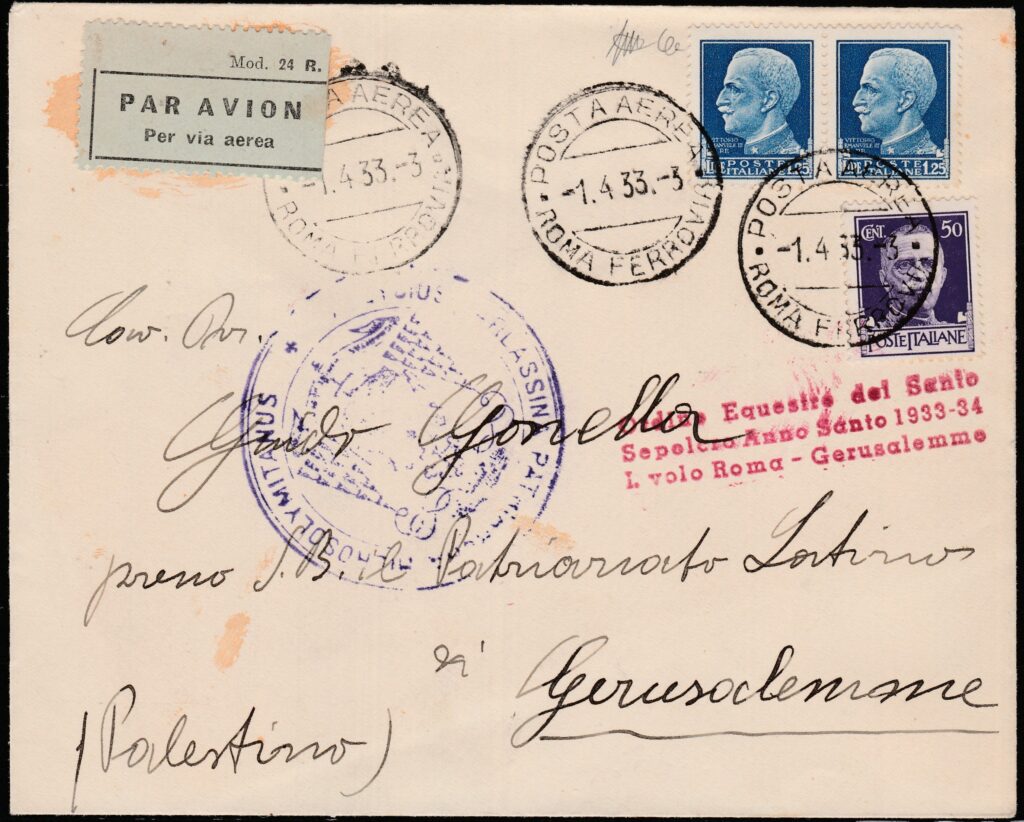 Mod. 24 R.
PAR AVION
Per via aerea
POSTA AEREA
-1.4.33.-3
ROMA FERROVIA
POSTA AEREA
-1.4.33.-3
ROMA FERROVIA
VITTORIO
EMANUELE III
RE
POSTE
ITALIANE
1.25
VITTORIO
EMANUELE III
RE
POSTE
ITALIANE
1.25
POSTA AEREA
-1.4.33.-3
ROMA FERROVIA
CENT. 50
POSTE ITALIANE
Ordine Equestre del Santo
Sepolcro Anno Santo 1933-34
I. volo Roma - Gerusalemme
Guido Gonella
presso S. B. il Patriarcato Latino
di
Gerusalemme
(Palestina)